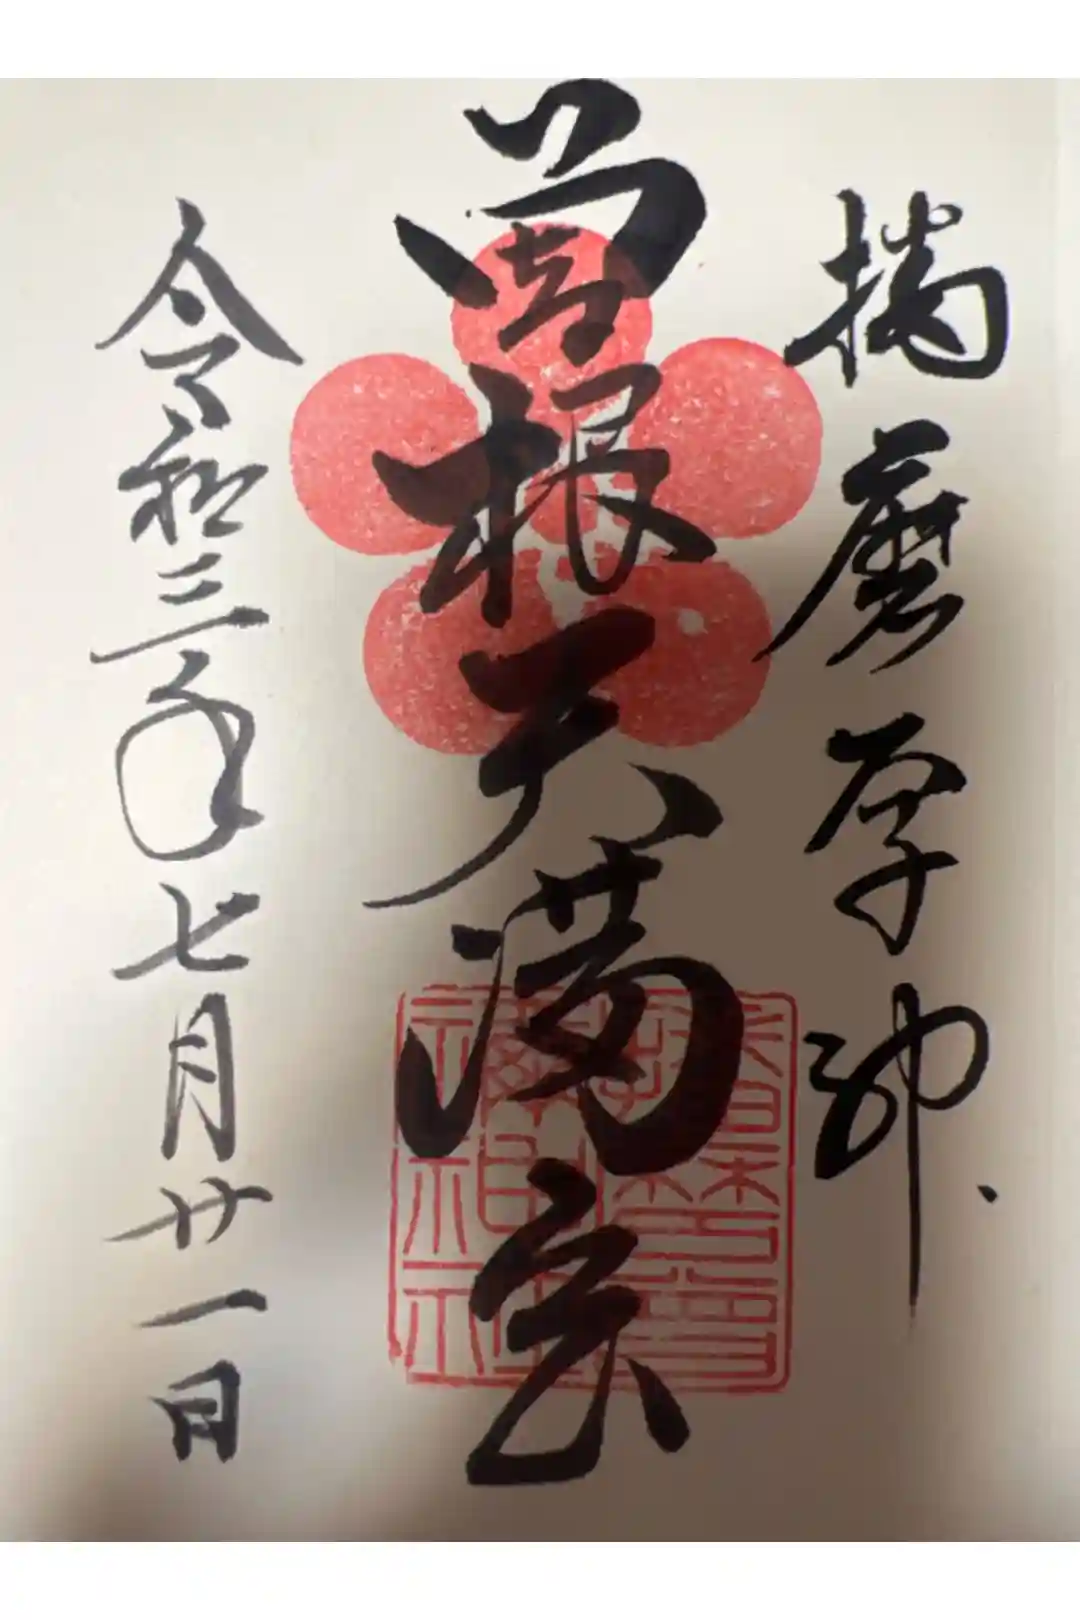 播磨厚師
曽根天満宮
令和三年七月廿一日